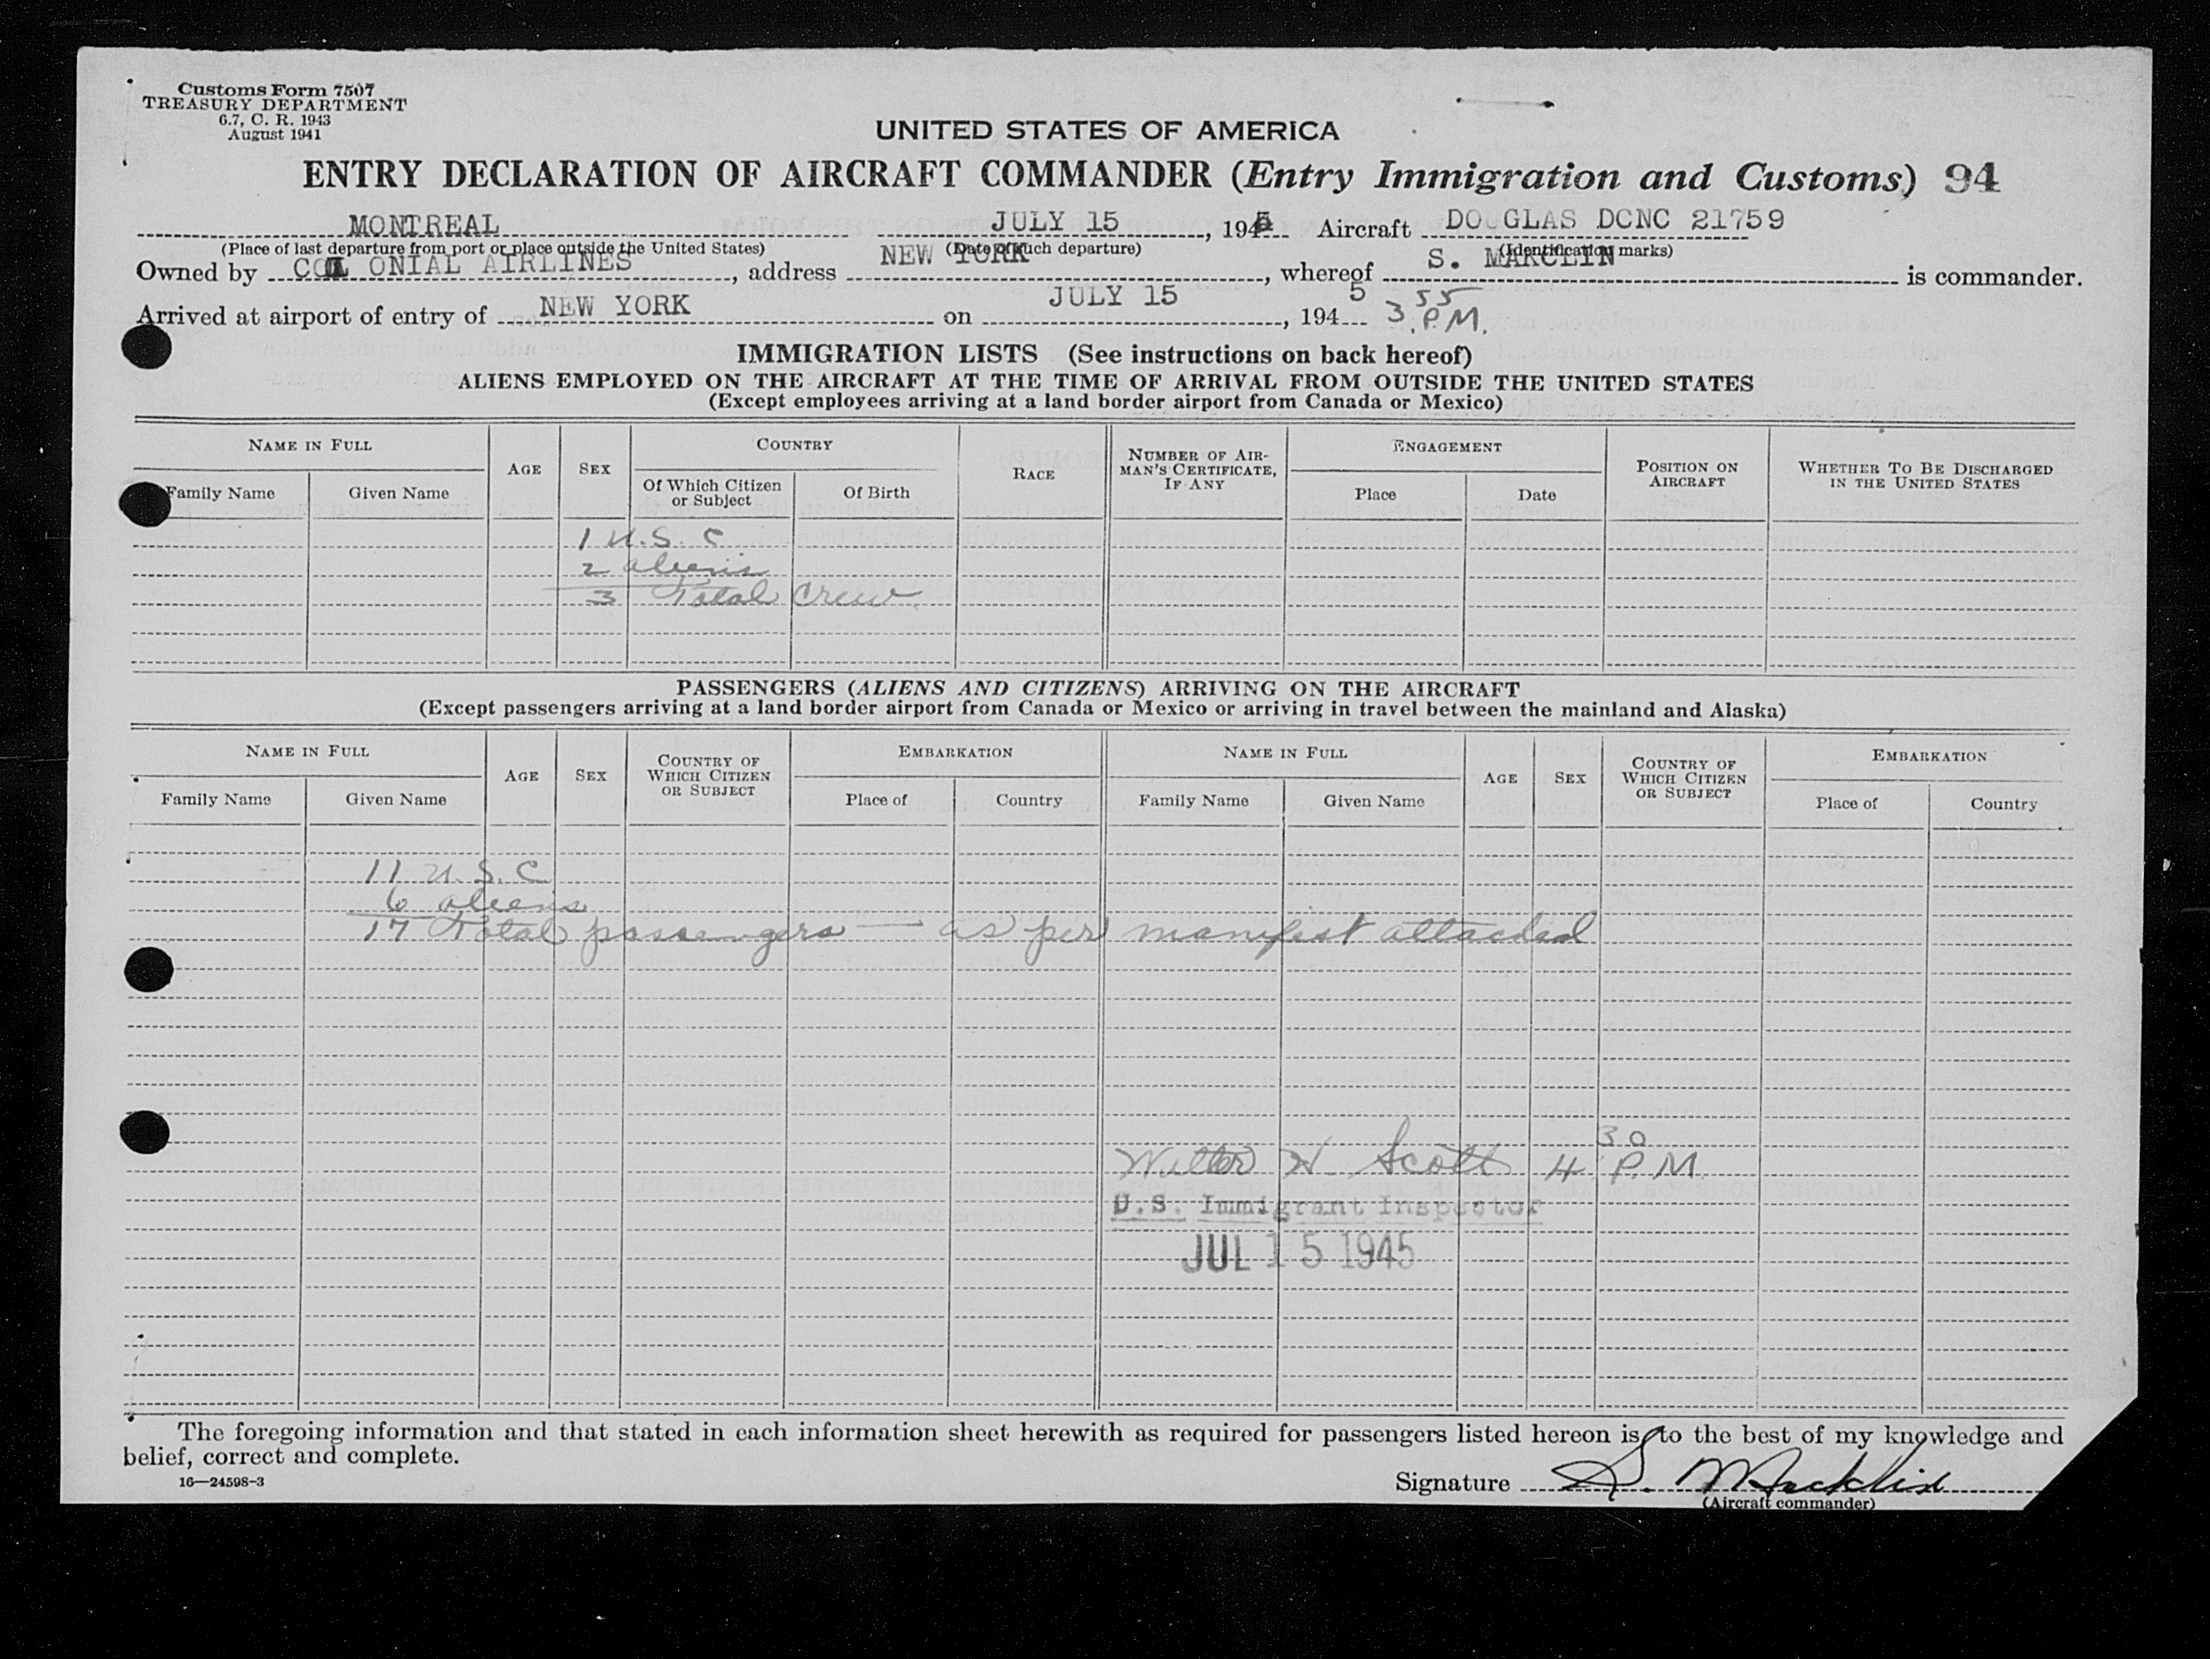 Customs Form 7507
TREASURY DEPARTMENT
6.7, C. R. 1943
August 1941
UNITED STATES OF AMERICA
ENTRY DECLARATION OF AIRCRAFT COMMANDER (Entry Immigration and Customs) 94
MONTREAL JULY 15, 1945 Aircraft DOUGLAS DCNC 21759
(Place of last departure from port or place outside the United States) (Date of such departure) (Identification marks)
Owned by COLONIAL AIRLINES, address NEW YORK, whereof S. MARCLIN is commander.
Arrived at airport of entry of NEW YORK on JULY 15, 1945 3 55 P.M.
IMMIGRATION LISTS (See instructions on back hereof)
ALIENS EMPLOYED ON THE AIRCRAFT AT THE TIME OF ARRIVAL FROM OUTSIDE THE UNITED STATES
(Except employees arriving at a land border airport from Canada or Mexico)
NAME IN FULL AGE SEX COUNTRY RACE NUMBER OF AIRMAN'S CERTIFICATE, IF ANY ENGAGEMENT POSITION ON AIRCRAFT WHETHER TO BE DISCHARGED IN THE UNITED STATES
Family Name Given Name Of Which Citizen or Subject Of Birth Place Date
1 U.S.C
2 aliens
3 Total crew
PASSENGERS (ALIENS AND CITIZENS) ARRIVING ON THE AIRCRAFT
(Except passengers arriving at a land border airport from Canada or Mexico or arriving in travel between the mainland and Alaska)
NAME IN FULL AGE SEX COUNTRY OF WHICH CITIZEN OR SUBJECT EMBARKATION NAME IN FULL AGE SEX COUNTRY OF WHICH CITIZEN OR SUBJECT EMBARKATION
Family Name Given Name Place of Country Family Name Given Name Place of Country
11 U.S.C
6 aliens
17 Total passengers — as per manifest attached
Walter H. Scott 4 30 P.M.
U.S. Immigrant Inspector
JUL 15 1945
The foregoing information and that stated in each information sheet herewith as required for passengers listed hereon is to the best of my knowledge and
belief, correct and complete.
16—24598-3
Signature S. Macklin
(Aircraft commander)